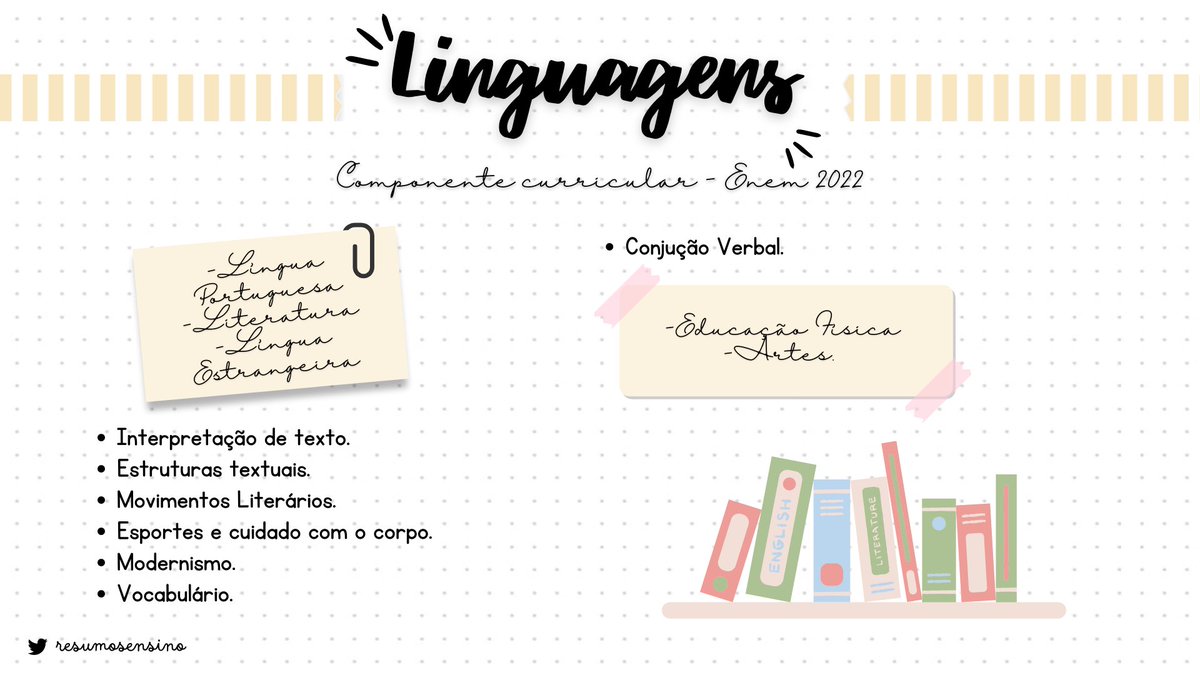 Linguagens
Componente curricular - Enem 2022
-Língua
Portuguesa
-Literatura
-Língua
Estrangeira
• Interpretação de texto.
• Estruturas textuais.
• Movimentos Literários.
• Esportes e cuidado com o corpo.
• Modernismo.
• Vocabulário.
• Conjução Verbal.
-Educação Física
-Artes.
ENGLISH
LITERATURE
resumosensino